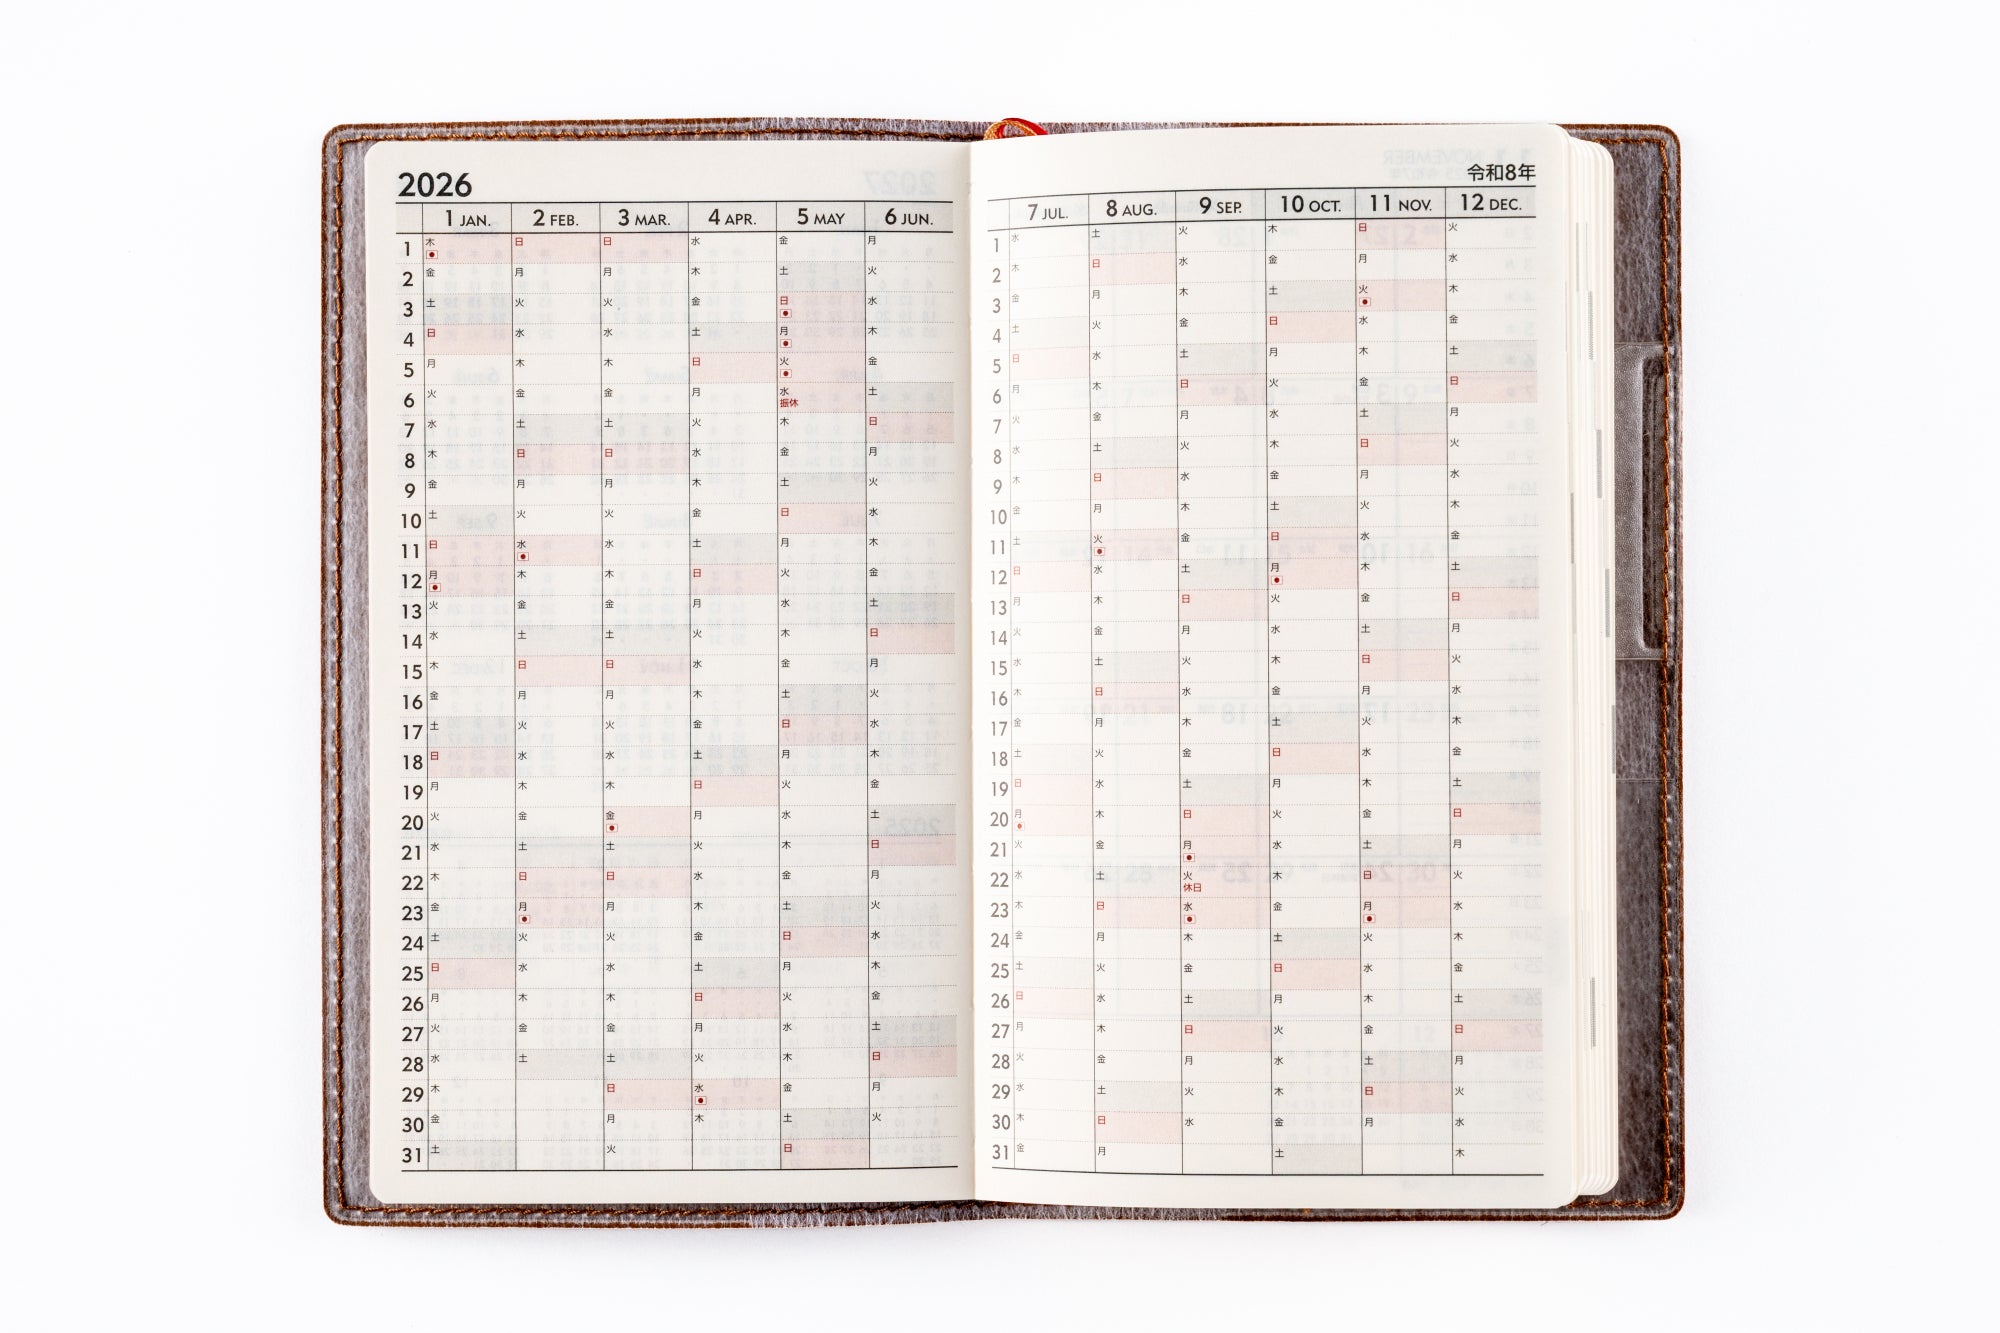 2026
1 JAN. 2 FEB. 3 MAR. 4 APR. 5 MAY 6 JUN.
1 木 日 日 水 金 月
2 金 月 月 木 土 火
3 土 火 火 金 日 水
4 日 水 水 土 月 木
5 月 木 木 日 火 金
6 火 金 金 月 水 土
振休
7 水 土 土 火 木 日
8 木 日 日 水 金 月
9 金 月 月 木 土 火
10 土 火 火 金 日 水
11 日 水 水 土 月 木
12 月 木 木 日 火 金
13 火 金 金 月 水 土
14 水 土 土 火 木 日
15 木 日 日 水 金 月
16 金 月 月 木 土 火
17 土 火 火 金 日 水
18 日 水 水 土 月 木
19 月 木 木 日 火 金
20 火 金 金 月 水 土
21 水 土 土 火 木 日
22 木 日 日 水 金 月
23 金 月 月 木 土 火
24 土 火 火 金 日 水
25 日 水 水 土 月 木
26 月 木 木 日 火 金
27 火 金 金 月 水 土
28 水 土 土 火 木 日
29 木 日 水 金 月
30 金 月 木 土 火
31 土 火 日
令和8年
7 JUL. 8 AUG. 9 SEP. 10 OCT. 11 NOV. 12 DEC.
1 水 土 火 木 日 火
2 木 日 水 金 月 水
3 金 月 木 土 火 木
4 土 火 金 日 水 金
5 日 水 土 月 木 土
6 月 木 日 火 金 日
7 火 金 月 水 土 月
8 水 土 火 木 日 火
9 木 日 水 金 月 水
10 金 月 木 土 火 木
11 土 火 金 日 水 金
12 日 水 土 月 木 土
13 月 木 日 火 金 日
14 火 金 月 水 土 月
15 水 土 火 木 日 火
16 木 日 水 金 月 水
17 金 月 木 土 火 木
18 土 火 金 日 水 金
19 日 水 土 月 木 土
20 月 木 日 火 金 日
21 火 金 月 水 土 月
22 水 土 火 木 日 火
休日
23 木 日 水 金 月 水
24 金 月 木 土 火 木
25 土 火 金 日 水 金
26 日 水 土 月 木 土
27 月 木 日 火 金 日
28 火 金 月 水 土 月
29 水 土 火 木 日 火
30 木 日 水 金 月 水
31 金 月 土 木